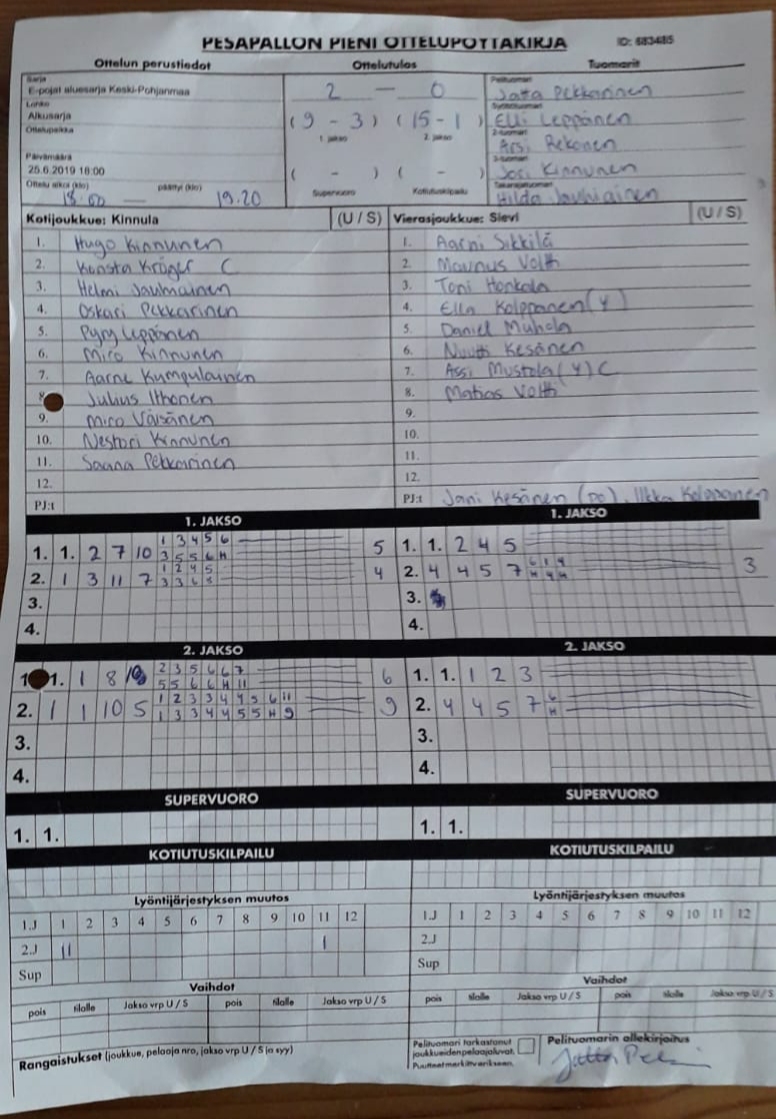 PESÄPALLON PIENI OTTELUPÖYTÄKIRJA
Ottelun perustiedot Ottelutulos Tuomarit
Sarja
E-pojat aluesarja Keski-Pohjanmaa
Lohko
Alkusarja
Ottelupaikka
Päivämäärä
25.6.2019 18:00
Ottelu alkoi (klo) päättyi (klo)
18.00 — 19.20
2 — 0
( 9 - 3 ) ( 15 - 1 )
1. jakso 2. jakso
( - ) ( - )
Supervuoro Kotiutuskilpailu
Pelituomari
Pekkarinen
Syöttötuomari
Elli Leppänen
2-tuomari
Arsi Rekonen
3-tuomari
Josi Kinnunen
Takarajatuomari
Hilda Jauhiainen
Kotijoukkue: Kinnula (U / S) Vierasjoukkue: Sievi (U / S)
1. Hugo Kinnunen 1. Aarni Sikkilä
2. Konsta Kröger C 2. Maunus Volti
3. Helmi Jauhiainen 3. Toni Honkala
4. Oskari Pekkarinen 4. Ella Kolppanen (Y)
5. Pyry Leppänen 5. Daniel Muhola
6. Mico Kinnunen 6. Nuutti Kesänen
7. Aarne Kumpulainen 7. Assi Mustola (Y) C
8. Julius Ithonen 8. Matias Volti
9. Mico Väisänen 9.
10. Nestori Kinnunen 10.
11. Saana Pekkarinen 11.
12. 12.
PJ:t PJ:t Jani Kesänen (PO), Ilkka Kolppanen
1. JAKSO 1. JAKSO
1. 1. 2 7 10 1 3 4 5 6 5 1. 1. 2 4 5
3 5 5 6 H
2. 1 3 11 7 1 2 4 5 4 2. 4 4 5 7 3
3 3 6
3. 3.
4. 4.
2. JAKSO 2. JAKSO
1. 1 8 10 2 3 5 6 6 7 6 1. 1. 1 2 3
5 5 6 6 H 11
2. 1 1 10 5 1 2 3 3 4 4 5 6 11 9 2. 4 4 5 7 6
1 3 3 4 4 5 5 H 9 H
3. 3.
4. 4.
SUPERVUORO SUPERVUORO
1. 1. 1. 1.
KOTIUTUSKILPAILU KOTIUTUSKILPAILU
Lyöntijärjestyksen muutos Lyöntijärjestyksen muutos
1.J 1 2 3 4 5 6 7 8 9 10 11 12 1.J 1 2 3 4 5 6 7 8 9 10 11 12
2.J 11 1 2.J
Sup Sup
Vaihdot Vaihdot
pois tilalle Jakso vrp U / S pois tilalle Jakso vrp U / S pois tilalle Jakso vrp U / S pois tilalle Jakso vrp U / S
Rangaistukset (joukkue, pelaaja nro, jakso vrp U / S ja syy)
Pelituomari tarkastanut
joukkueiden pelaajaluvat.
Puutteet merkitty erikseen.
Pelituomarin allekirjoitus